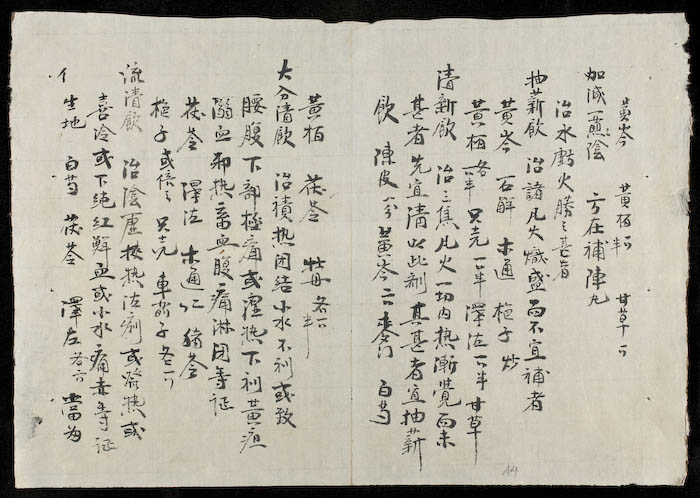 黄岑 黄栢二 半 甘草二
加减一煎陰 方在補陣九
治水虧火勝之甚者
抽薪飲 治諸凡火熾盛而不宜補者
黄岑 石斛 木通 梔子炒
黄栢各半 只壳一半 澤泄一半 甘草
清新飲 治三焦凡火一切内热漸覺而未
甚者先宜清以此劑其甚者宜抽薪
飲 陳皮 黄岑二 麥門 白芍
黄栢 茯苓 各 半
大分清飲 治積热闭结小水不利或致
腰腹下部極痛或湿热下利黄疸
溺血邪热蓄血腹痛淋闭等证
茯苓 澤泄 木通二 猪苓
梔子或倍之 只壳 車前子各一
流清飲 治陰虚挟热泄痢或發热或
喜冷或下纯红鲜血或小水痛赤等证
生地 白芍 茯苓 澤左各 當为
44